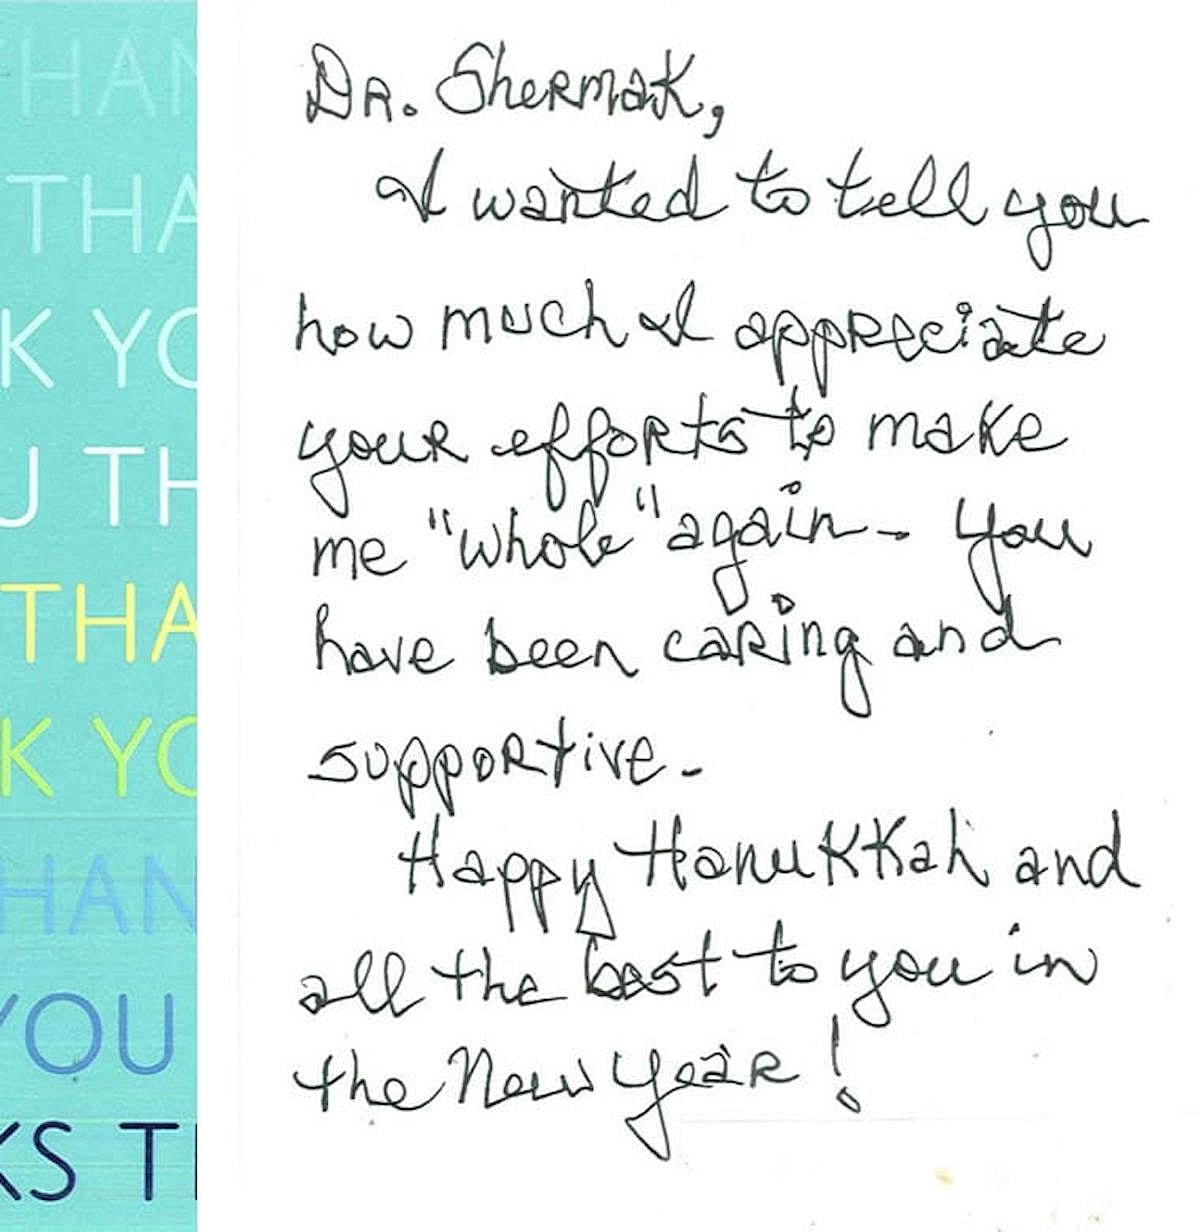 THAN
THA
K YO
U TH
THA
K YO
HAN
YOU
KS T
Dr. Shermak,
I wanted to tell you
how much I appreciate
your efforts to make
me "whole" again - You
have been caring and
supportive -
Happy Hanukkah and
all the best to you in
the New Year!